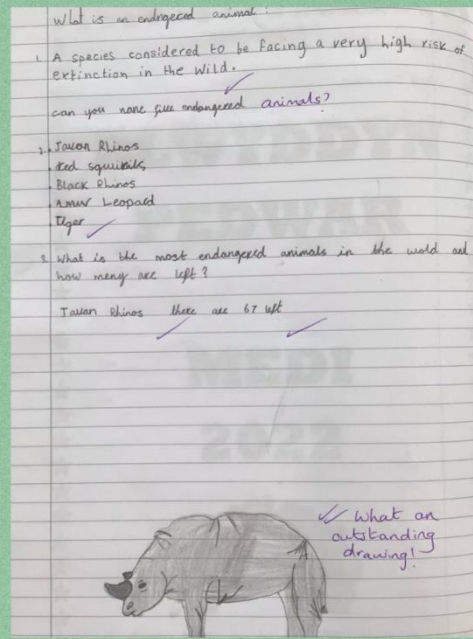 What is an endngeced animal?
1. A species considered to be facing a very high risk of
extinction in the wild.
can you name five endangered animals?
2. Javan Rhinos
Red squirils
Black Rhinos
Amur Leopard
Tiger
3. What is the most endangered animals in the wold and
how meny are left?
Javan Rhinos there are 67 left
What an
outstanding
drawing!